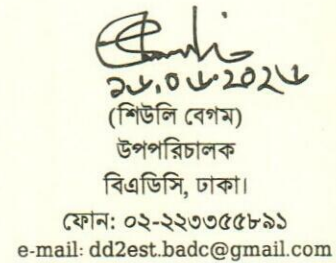 ১৬.০৬.২০২৬
(শিউলি বেগম)
উপপরিচালক
বিএডিসি, ঢাকা।
ফোন: ০২-২২৩৩৫৫৮৯১
e-mail: dd2est.badc@gmail.com